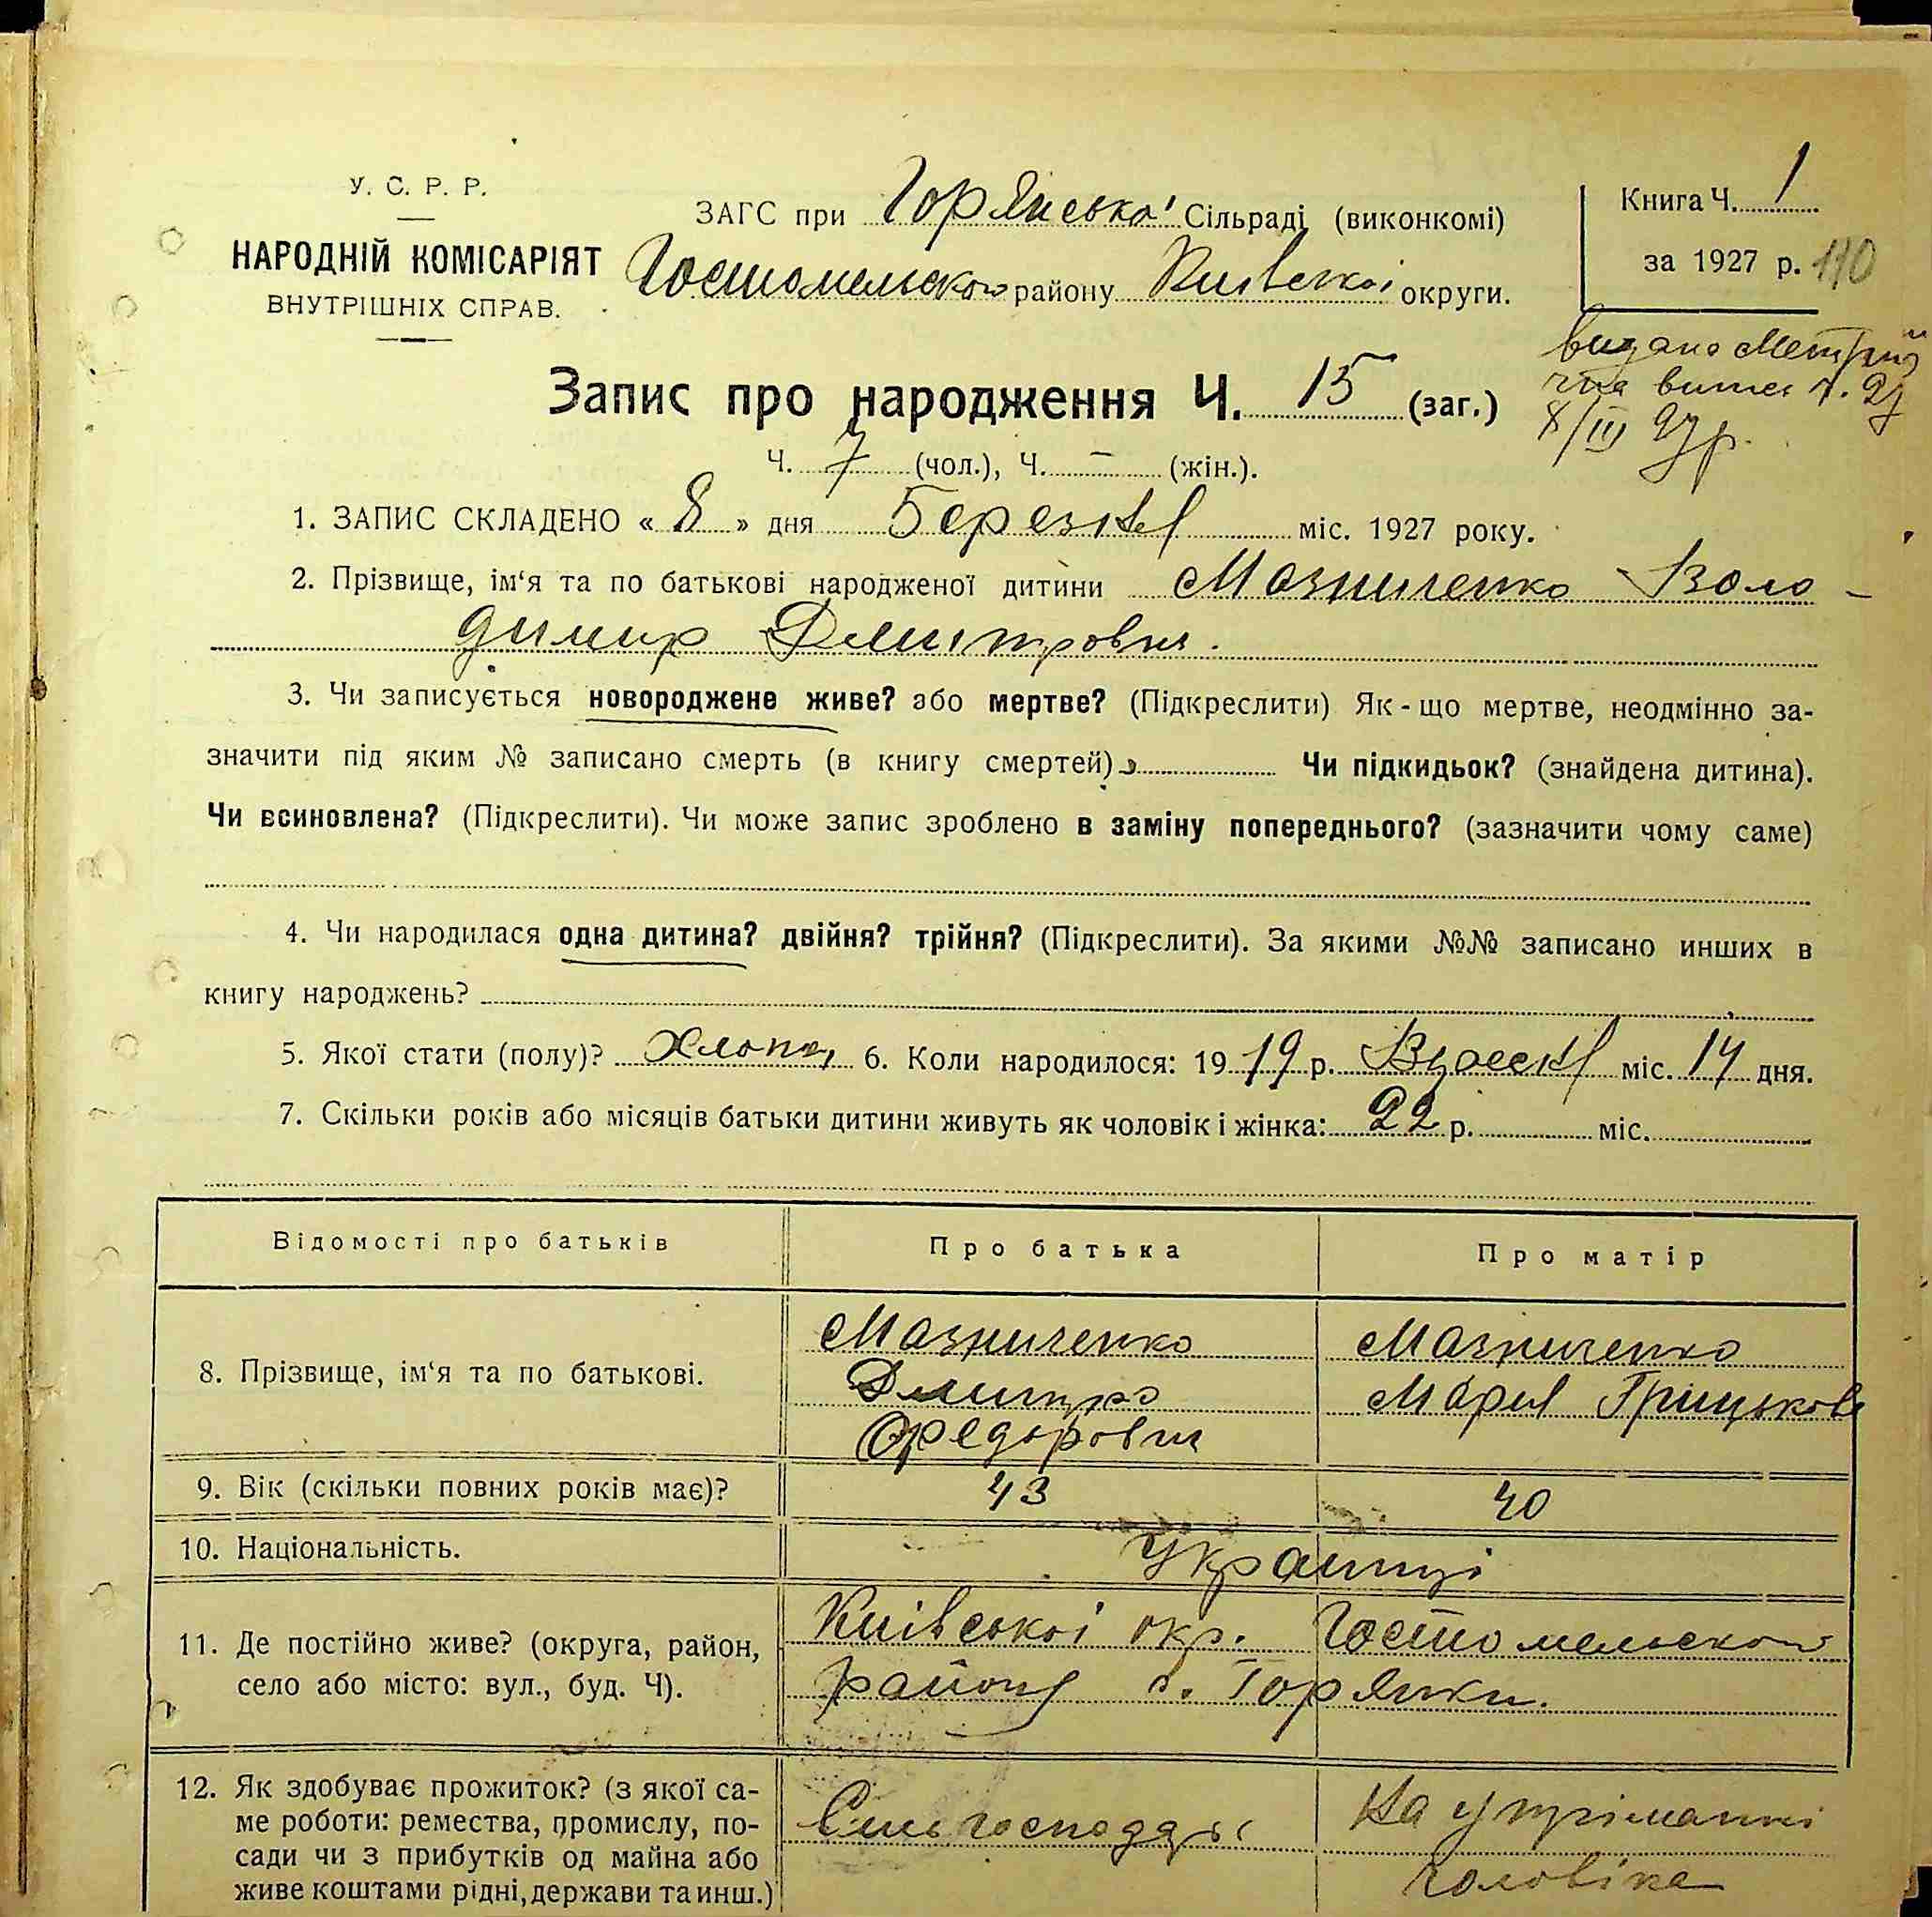 У. С. Р. Р.
НАРОДНІЙ КОМІСАРІЯТ
ВНУТРІШНІХ СПРАВ.
ЗАГС при Горянській Сільраді (виконкомі)
Гостомельського району Київської округи.
Книга Ч. 1
за 1927 р. 110
видано Метрич
8/III 27 р.
Запис про народження Ч. 15 (заг.)
Ч. 7 (чол.), Ч. – (жін.).
1. ЗАПИС СКЛАДЕНО « 8 » дня Березня міс. 1927 року.
2. Прізвище, ім‘я та по батькові народженої дитини Мазниченко Воло-
димир Дмитрович.
3. Чи записується новороджене живе? або мертве? (Підкреслити) Як-що мертве, неодмінно за-
значити під яким № записано смерть (в книгу смертей) Чи підкидьок? (знайдена дитина).
Чи всиновлена? (Підкреслити). Чи може запис зроблено в заміну попереднього? (зазначити чому саме)
4. Чи народилася одна дитина? двійня? трійня? (Підкреслити). За якими №№ записано инших в
книгу народжень?
5. Якої стати (полу)? Хлопец 6. Коли народилося: 19 19 р. міс. 14 дня.
7. Скільки років або місяців батьки дитини живуть як чоловік і жінка: 22 р. міс.
Відомості про батьків Про батька Про матір
8. Прізвище, ім‘я та по батькові.
Мазниченко
Дмитро
Федорович
Мазниченко
Мария Грицькова
9. Вік (скільки повних років має)? 43 40
10. Національність. Украинці
11. Де постійно живе? (округа, район,
село або місто: вул., буд. Ч).
Київської окр. Гостомельского
району с. Горянки.
12. Як здобуває прожиток? (з якої са-
ме роботи: ремества, промислу, по-
сади чи з прибутків од майна або
живе коштами рідні, держави та инш.)
На утріманні
чоловіка